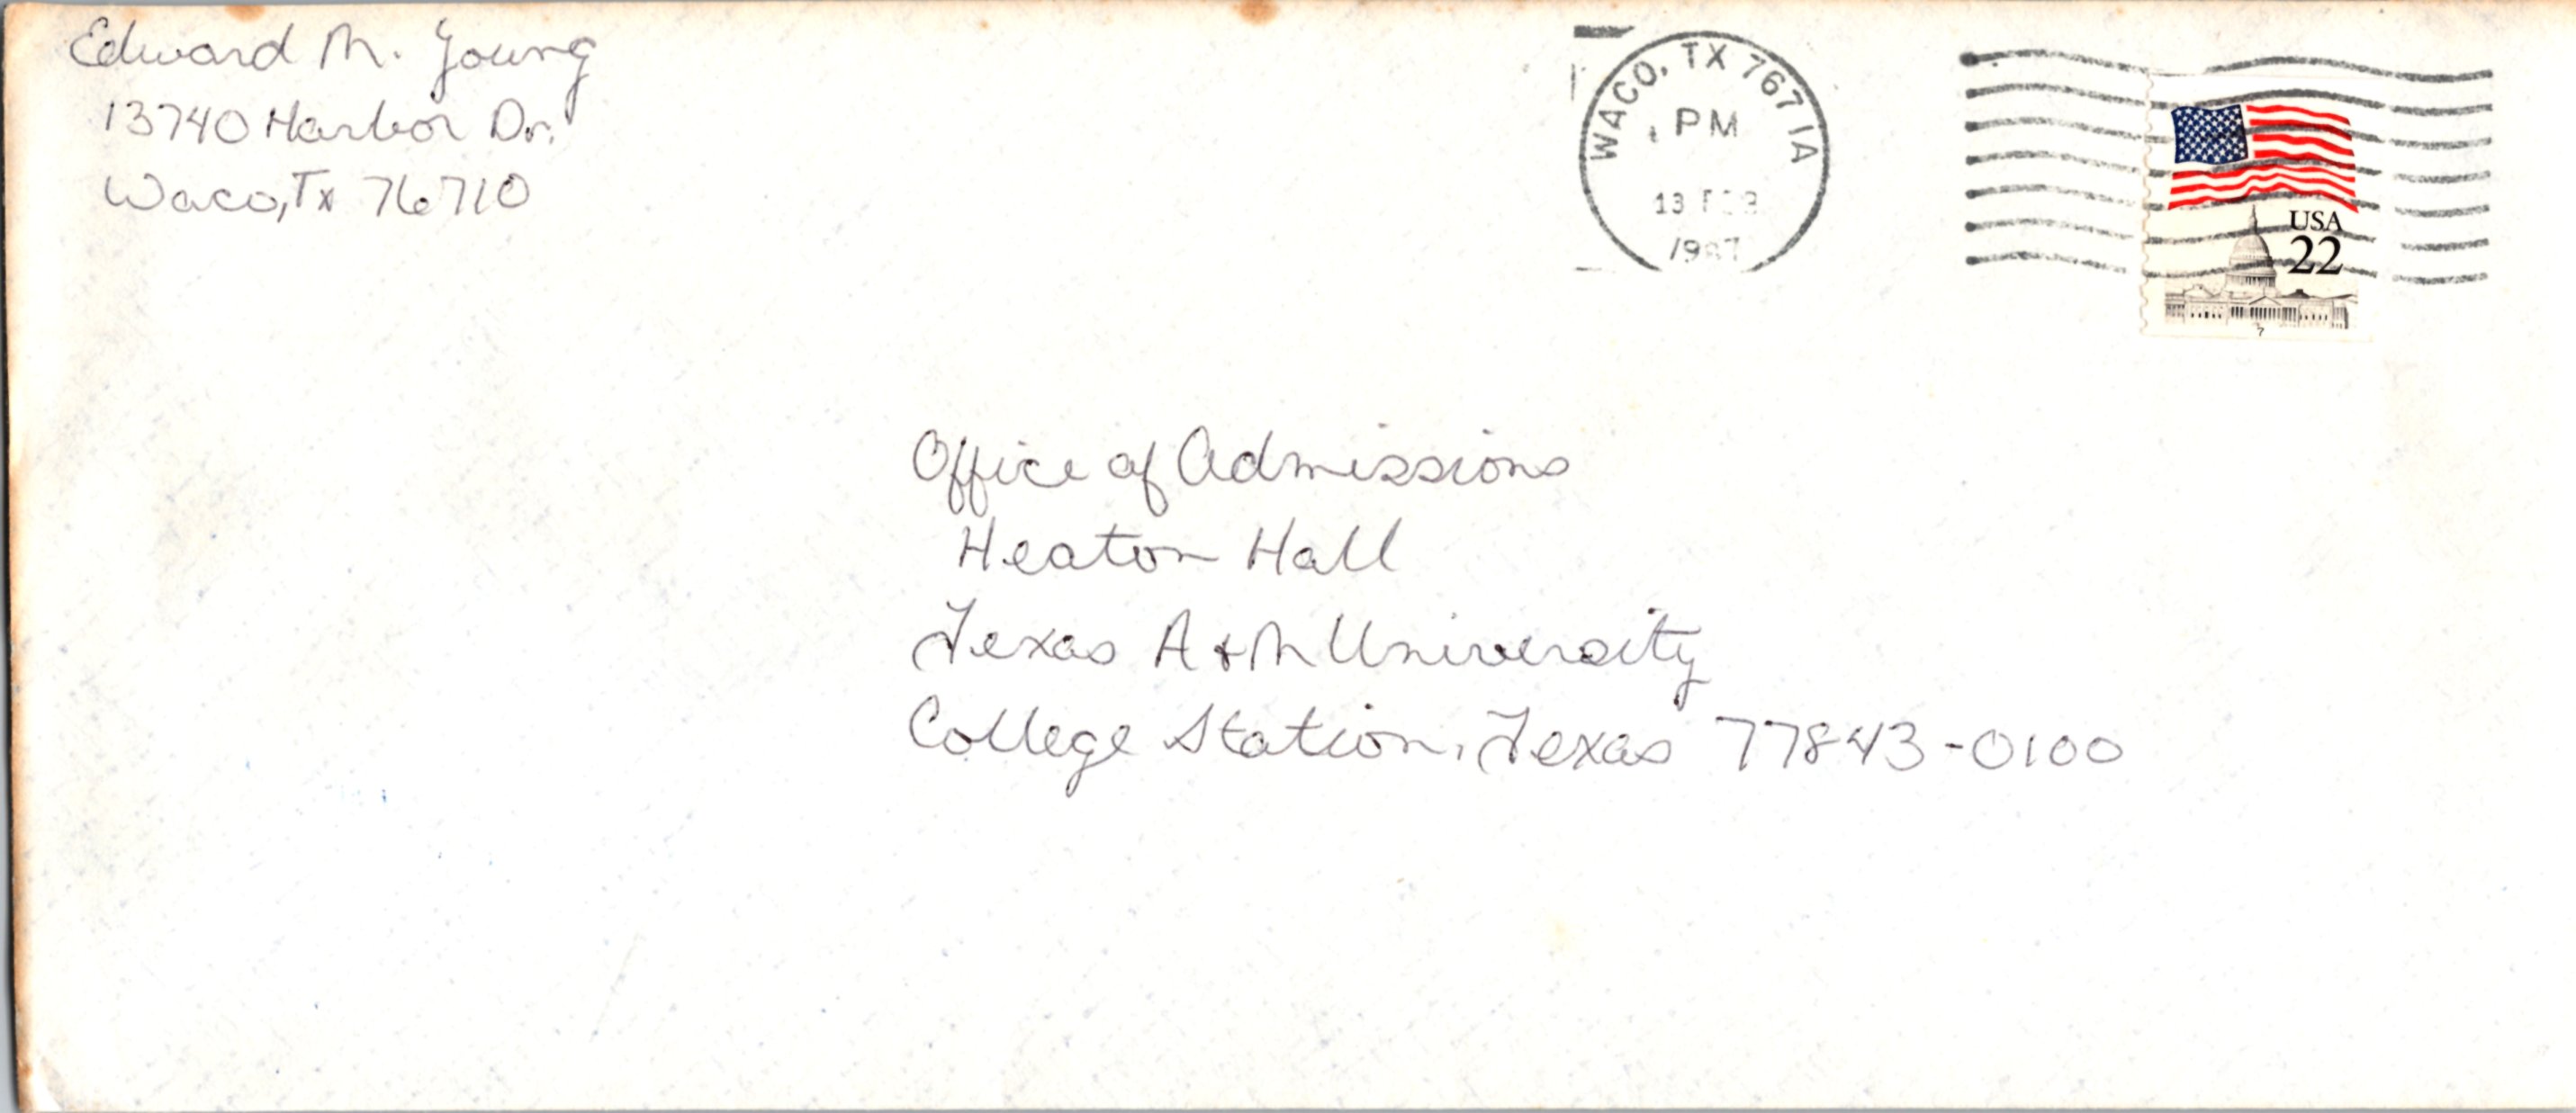 Edward M. Young
13740 Harbor Dr.
Waco, Tx 76710
WACO, TX 767 1A
PM
13 FEB
1987
USA
22
7
Office of Admissions
Heaton Hall
Texas A + M University
College Station, Texas 77843-0100